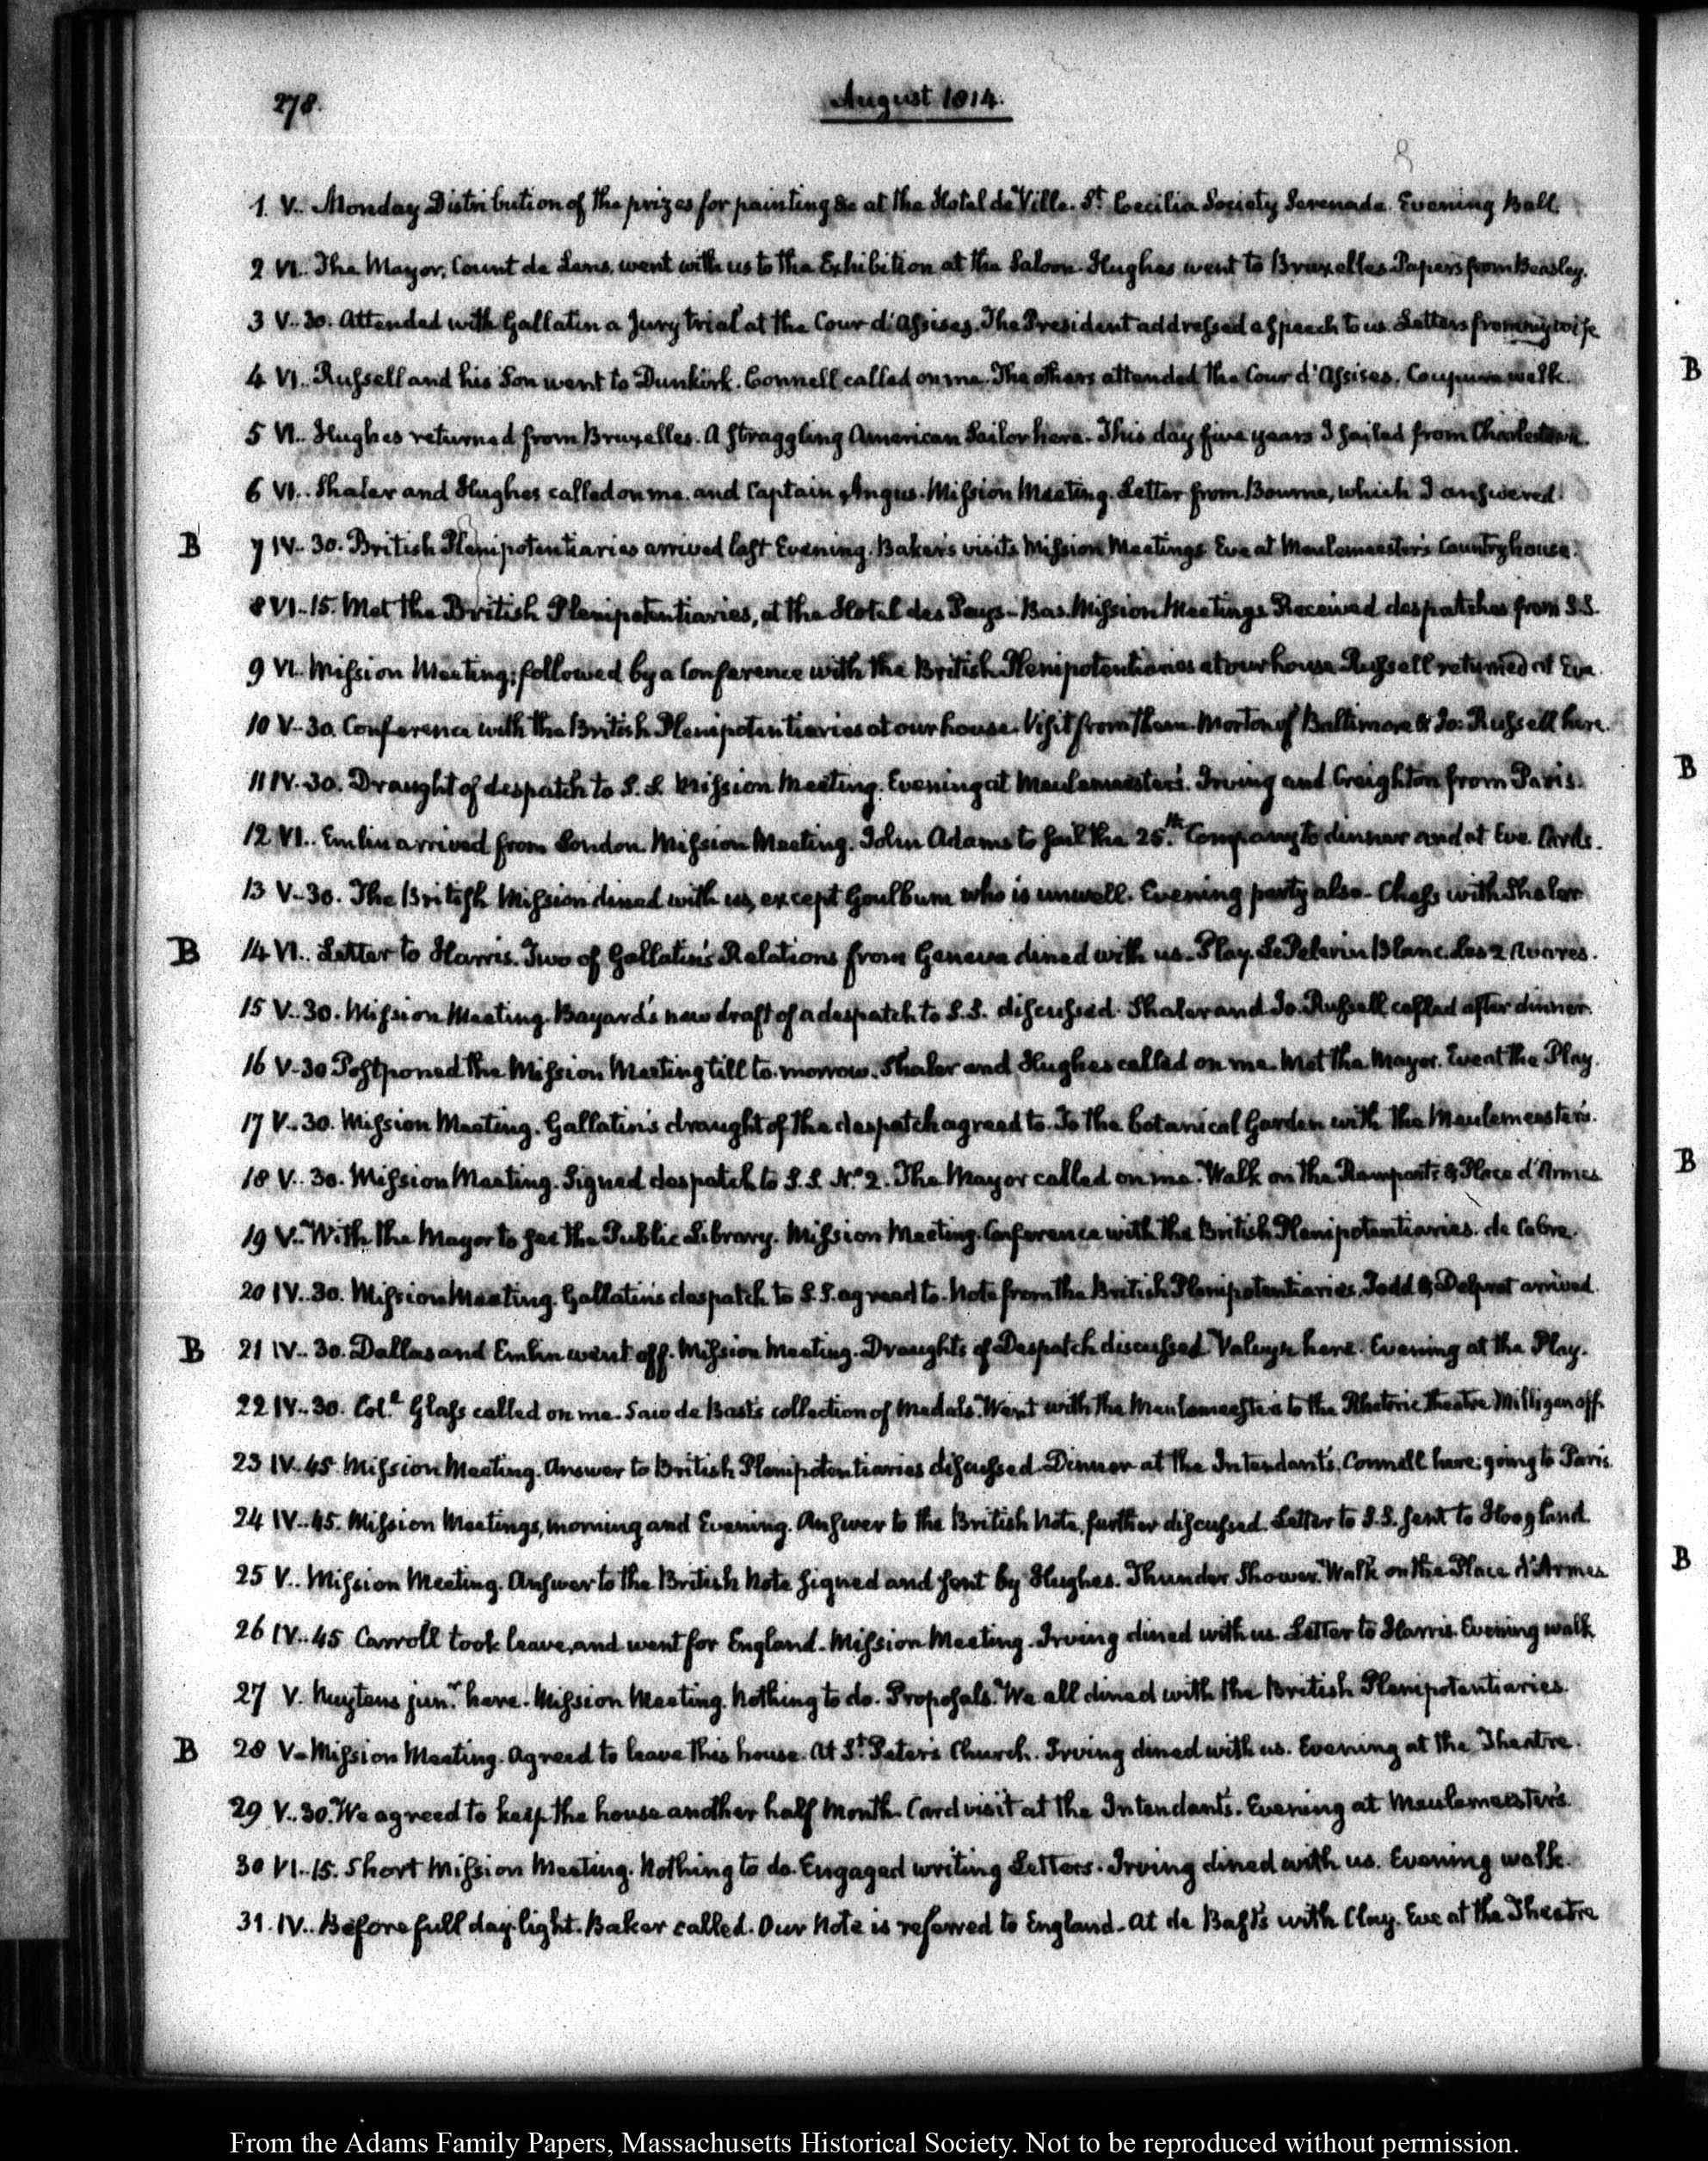 278.
August 1814.
8
1. V.. Monday Distribution of the prizes for painting &c at the Hotel de Ville. St. Cecilia Society Serenade. Evening Ball.
2 VI.. The Mayor, Count de Lens, went with us to the Exhibition at the Saloon. Hughes went to Bruxelles. Papers from Beasley.
3 V..30. Attended with Gallatin a Jury trial at the Cour d'Assises. The President addressed a speech to us. Letters from my wife
4 VI.. Russell and his Son went to Dunkirk. Connell called on me. The others attended the Cour d'Assises. Coupure walk.
5 VI.. Hughes returned from Bruxelles. A straggling American Sailor here. This day five years I sailed from Charlestown.
6 VI.. Shaler and Hughes called on me. and Captain Angus. Mission Meeting. Letter from Bourne, which I answered.
B 7 IV..30. British Plenipotentiaries arrived last Evening. Baker's visits Mission Meetings Eve at Meulemeester's Countryhouse.
8 VI..15. Met the British Plenipotentiaries, at the Hotel des Pays-Bas. Mission Meetings Received despatches from S.S.
9 VI. Mission Meeting; followed by a Conference with the British Plenipotentiaries at our house Russell returned at Eve.
10 V..30. Conference with the British Plenipotentiaries at our house. Visit from them. Morton of Baltimore & Jo: Russell here.
11 IV..30. Draught of despatch to S.S. Mission Meeting. Evening at Meulemeester's. Irving and Creighton from Paris.
12 VI.. Emlin arrived from London. Mission Meeting. John Adams to sail the 25.th Company to dinner and at Eve. Cards.
13 V..30. The British Mission dined with us, except Goulburn who is unwell. Evening party also. Chess with Shaler
B 14 VI.. Letter to Harris. Two of Gallatin's Relations from Geneva dined with us. Play. Le Pelerin Blanc. Les 2 Avares.
15 V..30. Mission Meeting. Bayard's new draft of a despatch to S.S. discussed. Shaler and Jo. Russell called after dinner.
16 V..30 Postponed the Mission Meeting till to-morrow. Shaler and Hughes called on me. Met the Mayor. Eve at the Play.
17 V..30. Mission Meeting. Gallatin's draught of the despatch agreed to. To the botanical Garden with the Meulemeester's.
18 V..30. Mission Meeting. Signed despatch to S.S. N.o 2. The Mayor called on me. Walk on the Ramparts & Place d'Armes
19 V.. With the Mayor to see the Public Library. Mission Meeting. Conference with the British Plenipotentiaries. de Cabre.
20 IV..30. Mission Meeting. Gallatin's despatch to S.S. agreed to. Note from the British Plenipotentiaries. Todd & Delprat arrived.
B 21 IV..30. Dallas and Emlin went off. Mission Meeting. Draughts of Despatch discussed. here. Evening at the Play.
22 IV..30. Col.l Glass called on me. Saw de Bast's collection of Medals. Went with the Meulemeester's to the Rhetoric theatre Milligan off.
23 IV.45. Mission Meeting. Answer to British Plenipotentiaries discussed. Dinner at the Intendant's. Connell here; going to Paris.
24 IV..45. Mission Meetings, morning and Evening. Answer to the British Note, further discussed. Letter to S.S. sent to Hoogland.
25 V.. Mission Meeting. Answer to the British Note signed and sent by Hughes. Thunder Shower. Walk on the Place d'Armes
26 IV..45 Carroll took leave, and went for England. Mission Meeting. Irving dined with us. Letter to Harris. Evening walk
27 V. Nuytens jun.r here. Mission Meeting. Nothing to do. Proposals. We all dined with the British Plenipotentiaries.
B 28 V.. Mission Meeting. Agreed to leave this house. At St. Peter's Church. Irving dined with us. Evening at the Theatre.
29 V..30. We agreed to keep the house another half Month. Card visit at the Intendant's. Evening at Meulemeester's.
30 VI..15. Short Mission Meeting. Nothing to do. Engaged writing Letters. Irving dined with us. Evening walk.
31. IV.. Before full day-light. Baker called. Our Note is referred to England. At de Bast's with Clay. Eve at the Theatre
B
B
B
B
From the Adams Family Papers, Massachusetts Historical Society. Not to be reproduced without permission.